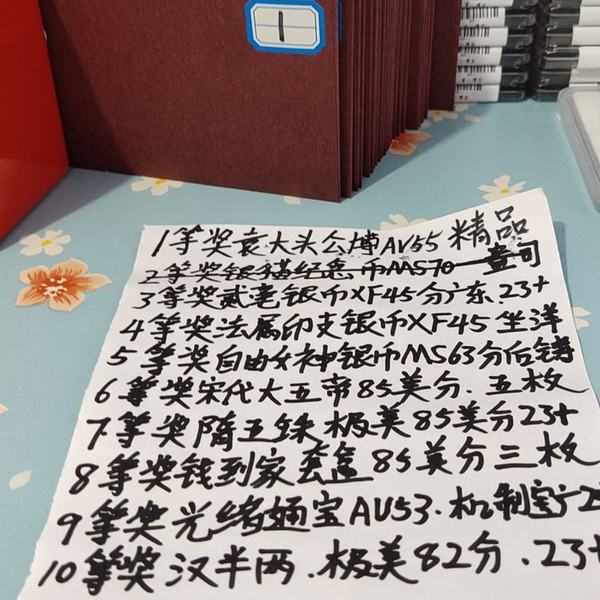 1
1等奖袁大头公博AU55精品
2等奖银猫纪念币MS70一壹句
3等奖贰毫银币XF45分广东.23+
4等奖法属印支银币XF45坐洋
5等奖自由女神银币MS63分后铸
6等奖宋代大五帝85美分.五枚
7等奖隋五铢极美85美分23+
8等奖钱到家套盒85美分三枚
9等奖光绪通宝AU53.机制宝广2
10等奖汉半两.极美82分.23+